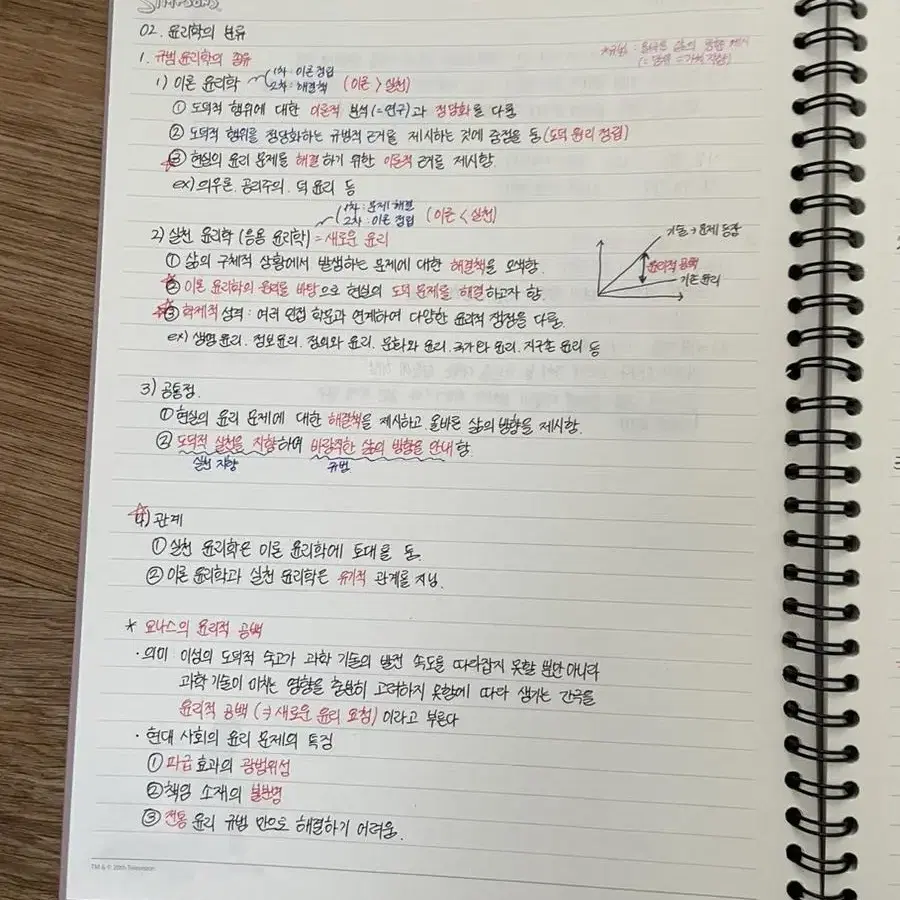 SIMPSONS
02. 윤리학의 분류
1. 규범 윤리학의 종류
*규범 : 인간의 삶의 방향 제시
1차 : 이론 정립
1) 이론 윤리학
2차 : 해결책 (이론 > 실천)
① 도덕적 행위에 대한 이론적 분석(=연구)과 정당화를 다룸
② 도덕적 행위를 정당화하는 규범적 근거를 제시하는 것에 중점을 둠 (도덕 원리 정립)
③ 현실의 윤리 문제를 해결하기 위한 이론적 근거를 제시함.
ex) 의무론. 공리주의. 덕 윤리 등
1차 : 문제 해결
2차 : 이론 정립 (이론 < 실천)
2) 실천 윤리학 (응용 윤리학) = 새로운 윤리
① 삶의 구체적 상황에서 발생하는 문제에 대한 해결책을 모색함.
② 이론 윤리학의 원리를 바탕으로 현실의 도덕 문제를 해결하고자 함.
③ 학제적 성격 : 여러 인접 학문과 연계하여 다양한 윤리적 쟁점을 다룸.
ex) 생명 윤리. 정보 윤리. 정의와 윤리. 문화와 윤리. 국가와 윤리. 지구촌 윤리 등
기술 → 문제 등장
윤리적 공백
기존 윤리
3) 공통점.
① 현실의 윤리 문제에 대한 해결책을 제시하고 올바른 삶의 방향을 제시함.
② 도덕적 실천을 지향하여 바람직한 삶의 방향을 안내함.
실천 지향 규범
4) 관계
① 실천 윤리학은 이론 윤리학에 토대를 둠.
② 이론 윤리학과 실천 윤리학은 유기적 관계를 지님.
* 요나스의 윤리적 공백
· 의미 : 이성의 도덕적 숙고가 과학 기술의 발전 속도를 따라잡지 못할 뿐만 아니라
과학 기술이 미치는 영향을 충분히 고려하지 못함에 따라 생기는 간극을
윤리적 공백 (⇒ 새로운 윤리 요청) 이라고 부른다
· 현대 사회의 윤리 문제의 특징
① 파급 효과의 광범위성
② 책임 소재의 불분명
③ 전통 윤리 규범 만으로 해결하기 어려움.
TM & © 20th Television